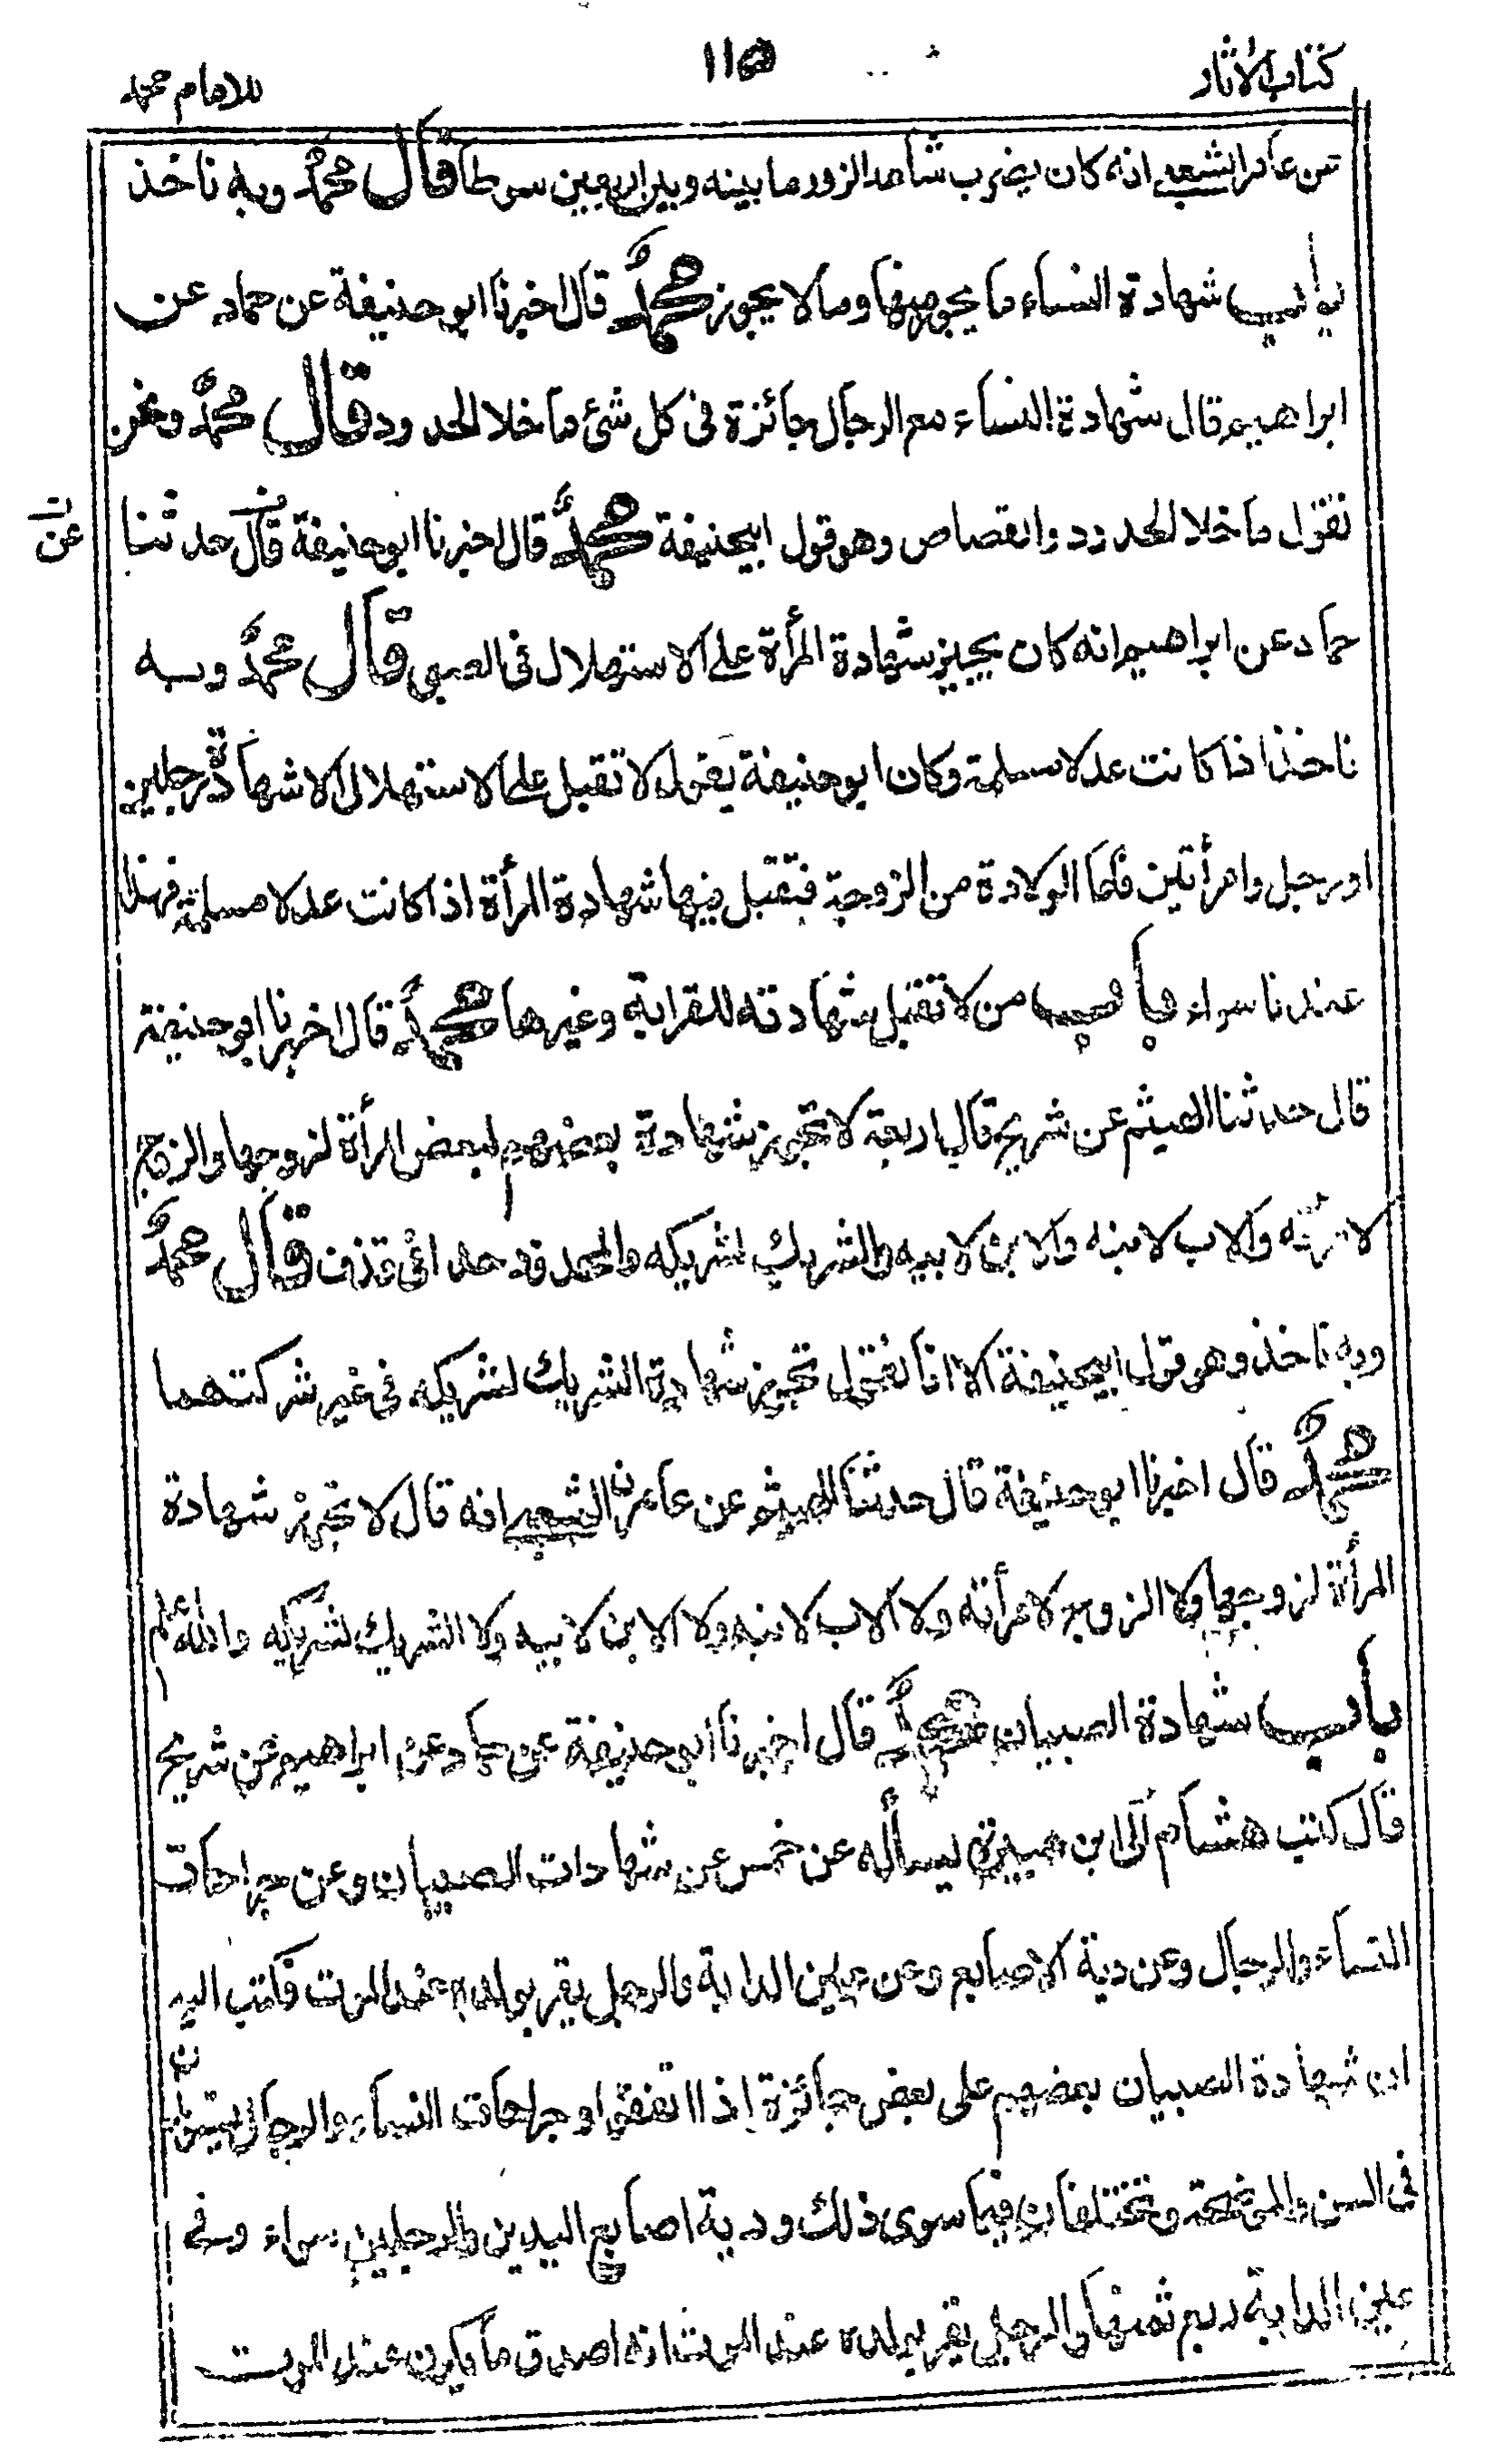 كتاب الاثار
١١٥
للامام محمد
عن عامر الشعبي انه كان يضرب شاهد الزور ما بينه وبين اربعين سوطا قال محمد وبه ناخذ
باب شهادة النساء ما يجوز منها وما لا يجوز محمد قال اخبرنا ابو حنيفة عن حماد عن
ابراهيم قال شهادة النساء مع الرجال جائزة في كل شئ ما خلا الحدود قال محمد ونحن
نقول ما خلا الحدود والقصاص وهو قول ابيحنيفة محمد قال اخبرنا ابو حنيفة قال حدثنا
عن
حماد عن ابراهيم انه كان يجيز شهادة المرأة على الاستهلال في الصبي قال محمد وبه
ناخذ اذا كانت عدلا مسلمة وكان ابو حنيفة يقول لا تقبل على الاستهلال الا شهادة رجلين
او رجل وامرأتين فاما الولادة من الزوجة فتقبل فيها شهادة المرأة اذا كانت عدلا مسلمة فهذا
عندنا سواء باب من لا تقبل شهادته للقرابة وغيرها محمد قال اخبرنا ابو حنيفة
قال حدثنا الهيثم عن شريح قال اربعة لا تجوز شهادة بعضهم لبعض المرأة لزوجها والزوج
لامرأته والاب لابنه والابن لابيه والشريك لشريكه والمحدود حدا في قذف قال محمد
وبه ناخذ وهو قول ابيحنيفة الا انا نقول تجوز شهادة الشريك لشريكه في غير شركتهما
محمد قال اخبرنا ابو حنيفة قال حدثنا الهيثم عن عامر الشعبي انه قال لا تجوز شهادة
المرأة لزوجها ولا الزوج لامرأته ولا الاب لابنه ولا الابن لابيه ولا الشريك لشريكه والله اعلم
باب شهادة الصبيان محمد قال اخبرنا ابو حنيفة عن حماد عن ابراهيم عن شريح
قال كتب هشام الى ابن هبيرة يسأله عن خمس عن شهادات الصبيان وعن جراحات
النساء والرجال وعن دية الاصابع وعن عين الدابة والرجل يقر بولده عند الموت فكتب اليه
ان شهادة الصبيان بعضهم على بعض جائزة اذا اتفقوا وجراحات النساء والرجال يستويان
في السن والموضحة وتختلفان فيما سوى ذلك ودية اصابع اليدين والرجلين سواء وفي
عين الدابة ربع ثمنها والرجل يقر بولده عند الموت انه اصدق ما يكون عند الموت